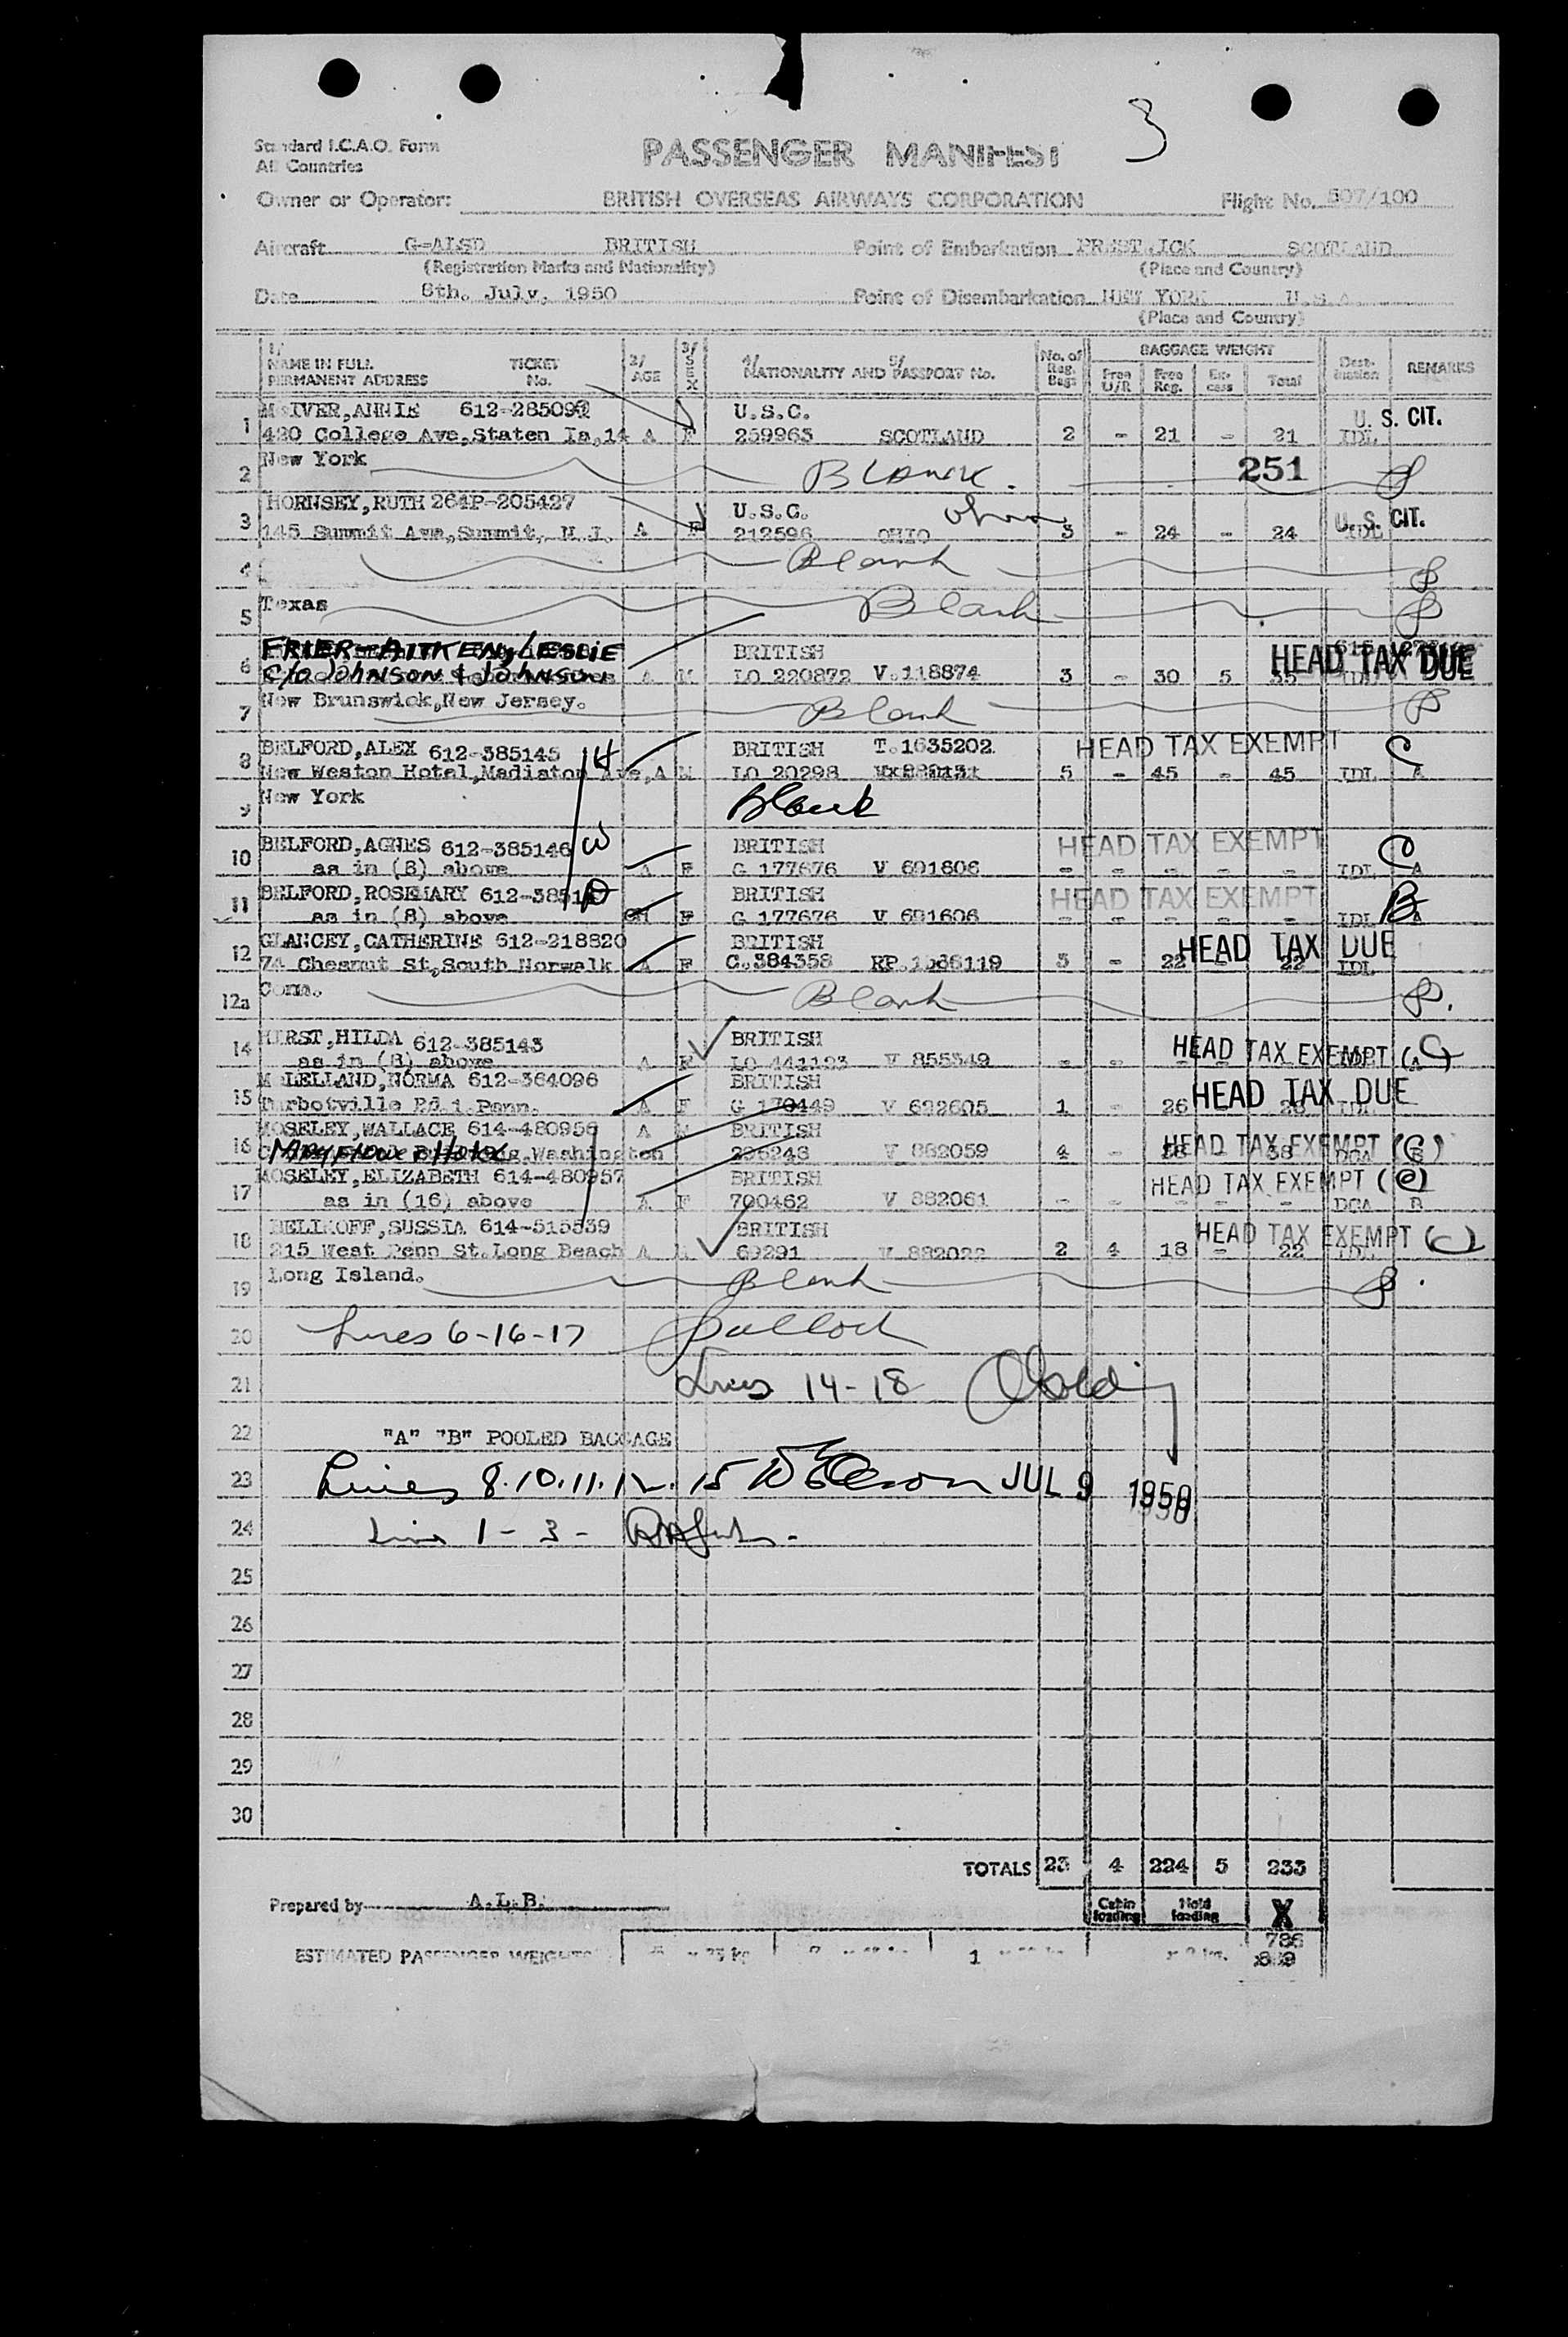 3
Standard I.C.A.O. Form
All Countries
PASSENGER MANIFEST
Owner or Operator: BRITISH OVERSEAS AIRWAYS CORPORATION Flight No. 507/100
Aircraft G-ALSD BRITISH Point of Embarkation PRESTWICK SCOTLAND
(Registration Marks and Nationality) (Place and Country)
Date 8th. July, 1950 Point of Disembarkation NEW YORK U.S.A.
(Place and Country)
1/ NAME IN FULL PERMANENT ADDRESS TICKET No. 2/ AGE 3/ SEX 4/ NATIONALITY AND 5/ PASSPORT No. No. of Reg. Bags BAGGAGE WEIGHT Free U/R Free Reg. Ex-cess Total Dest-ination REMARKS
1 McIVER, ANNIE 612-285092 U.S.C. U. S. CIT.
420 College Ave, Staten Is, 14 A F 259963 SCOTLAND 2 - 21 - 21 IDL
2 New York BLANK. 251
HORNSEY, RUTH 264P-205427 U.S.C. Ohio
3 145 Summit Ave, Summit, N.J. A F 212596 OHIO 3 - 24 - 24 IDL U. S. CIT.
4 Blank
5 Texas Blank
FRIER-AITKEN, LESLIE BRITISH HEAD TAX DUE
6 C/O JOHNSON & JOHNSON A M LO 220872 V.118874 3 - 30 5 35 IDL
7 New Brunswick, New Jersey. Blank
BELFORD, ALEX 612-385145 H BRITISH T.1635202 HEAD TAX EXEMPT C
8 New Weston Hotel, Madiston Ave, A M LO 20298 5 - 45 - 45 IDL A
9 New York Blank
10 BELFORD, AGNES 612-385146 W BRITISH HEAD TAX EXEMPT C
as in (8) above A F G 177676 V 691606 - - - - - IDL A
11 BELFORD, ROSEMARY 612-3851 D BRITISH HEAD TAX EXEMPT B
as in (8) above CH F G 177676 V 691606 - - - - - IDL A
GLANCEY, CATHERINE 612-218820 BRITISH HEAD TAX DUE
12 74 Chesnut St, South Norwalk A F C.384358 RP.1536119 3 - 22 - 22 IDL
12a Conn. Blank
14 HIRST, HILDA 612-385143 BRITISH HEAD TAX EXEMPT (C)
as in (8) above A F LO 441123 V 855349 - - A
McLELLAND, NORMA 612-364096 BRITISH HEAD TAX DUE
15 Turbotville Rd.1.Penn. A F G 170449 V 692605 1 - 26 26 IDL
MOSELEY, WALLACE 614-480956 A M BRITISH HEAD TAX EXEMPT (C)
16 MAYFLOWER HOTEL Washington 236248 V 882059 4 - 38 - 38 DCA B
MOSELEY, ELIZABETH 614-480957 BRITISH HEAD TAX EXEMPT (C)
17 as in (16) above A F 700462 V 882061 - - - - - DCA B
BELIKOFF, SUSSIA 614-515539 BRITISH HEAD TAX EXEMPT (C)
18 215 West Penn St. Long Beach A M 69291 V 882022 2 4 18 - 22 IDL
19 Long Island. Blank
20 Lines 6-16-17
21 Lines 14-18
22 "A" "B" POOLED BAGGAGE
23 Lines 8.10.11.12.15 JUL 9 1950
24 Line 1-3-
25
26
27
28
29
30
TOTALS 23 4 224 5 233
Prepared by A.L.B. Cabin loading Hold loading X
786
ESTIMATED PASSENGER WEIGHTS 1